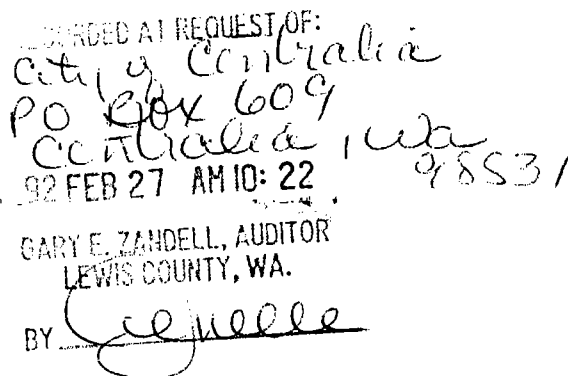 RECORDED AT REQUEST OF:
City of Centralia
PO Box 609
Centralia, Wa
98531
92 FEB 27 AM 10: 22
GARY E. ZANDELL, AUDITOR
LEWIS COUNTY, WA.
BY